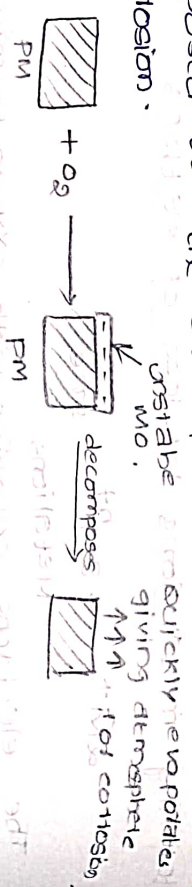 rosion.
+ O₂ →
unstabe
MO.
decomposes
Quickly evaporates
giving atmosphere
↑↑↑ for corrosion
PM
PM